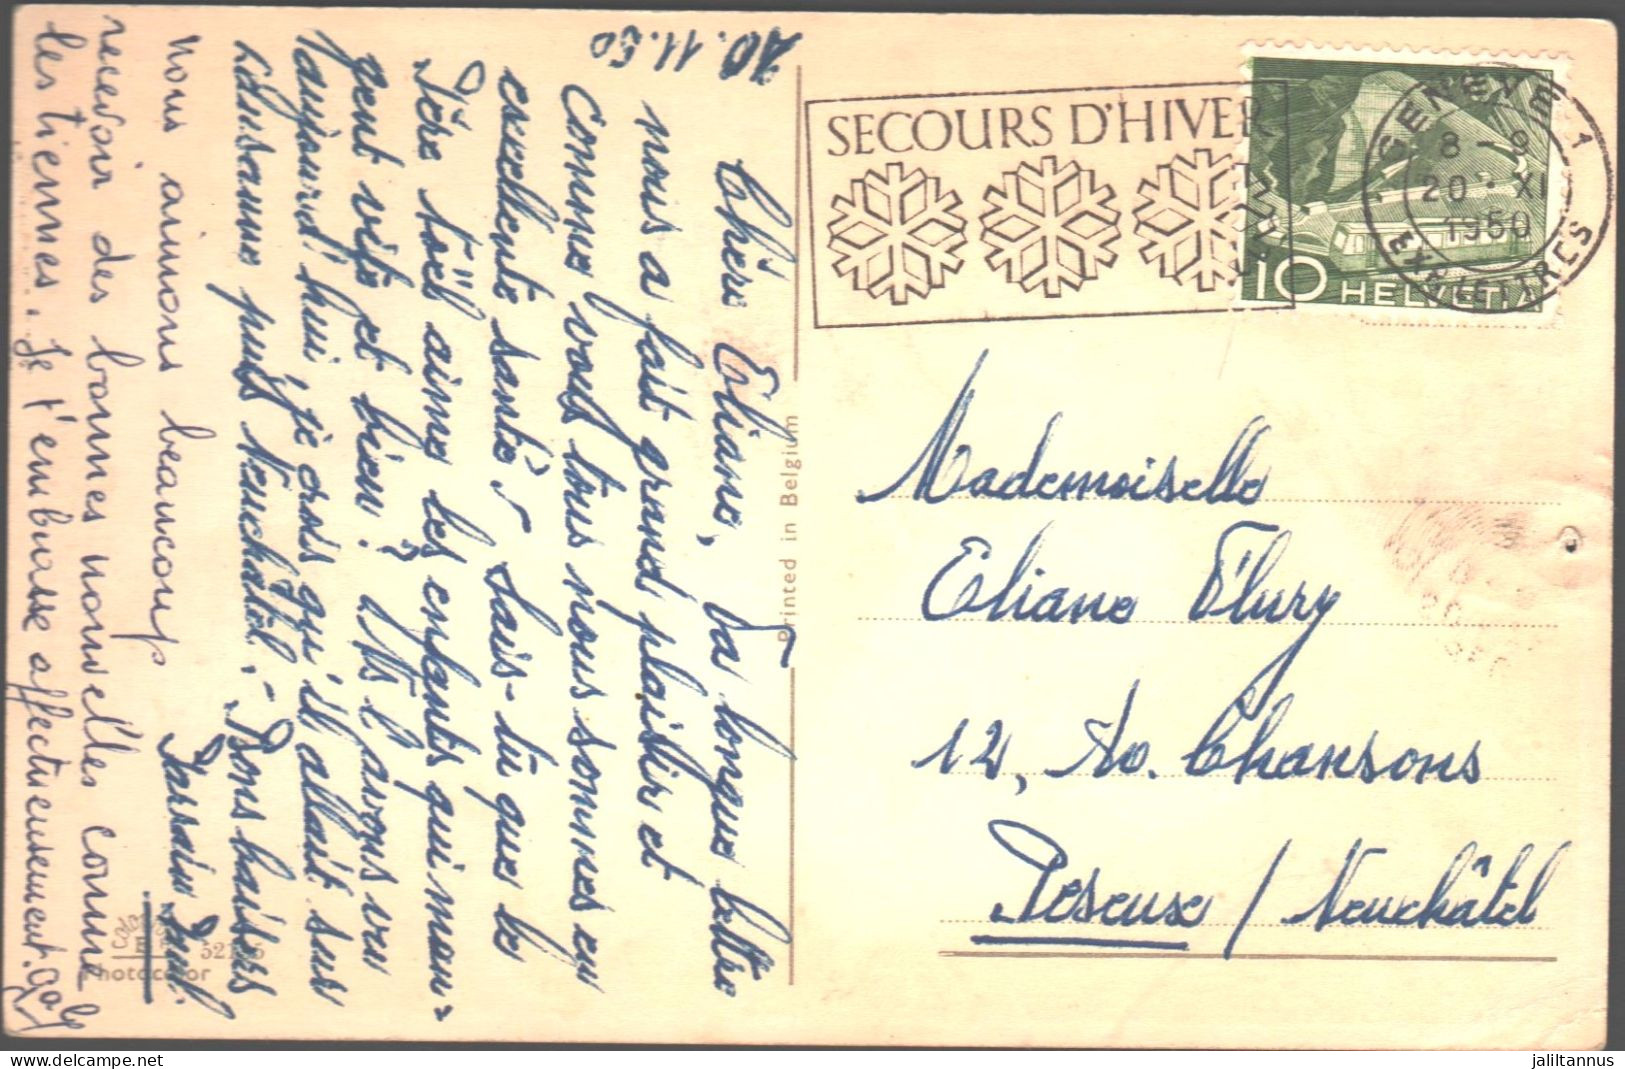 20.11.50
Chère Eliane, Ta longue lettre
nous a fait grand plaisir et
comme vous tous nous sommes en
excellente santé. Sais-tu que le
Père Noël aime les enfants qui man=
gent vite et bien? Ns l'avons vu
aujourd'hui, je crois qu'il allait sur
Lausanne puis Neuchâtel. Bons baisers
Parrain Paul.
Nous aimons beaucoup
recevoir des bonnes nouvelles comme
les tiennes. Je t'embrasse affectueusement.
Printed in Belgium
Photocolor
SECOURS D'HIVER
GENEVE 1
8-9
20.XI
1950
EXP. LETTRES
10 HELVETIA
Mademoiselle
Eliane Flury
12, Av. Chansons
Peseux / Neuchâtel
delcampe.net
jaliltannus